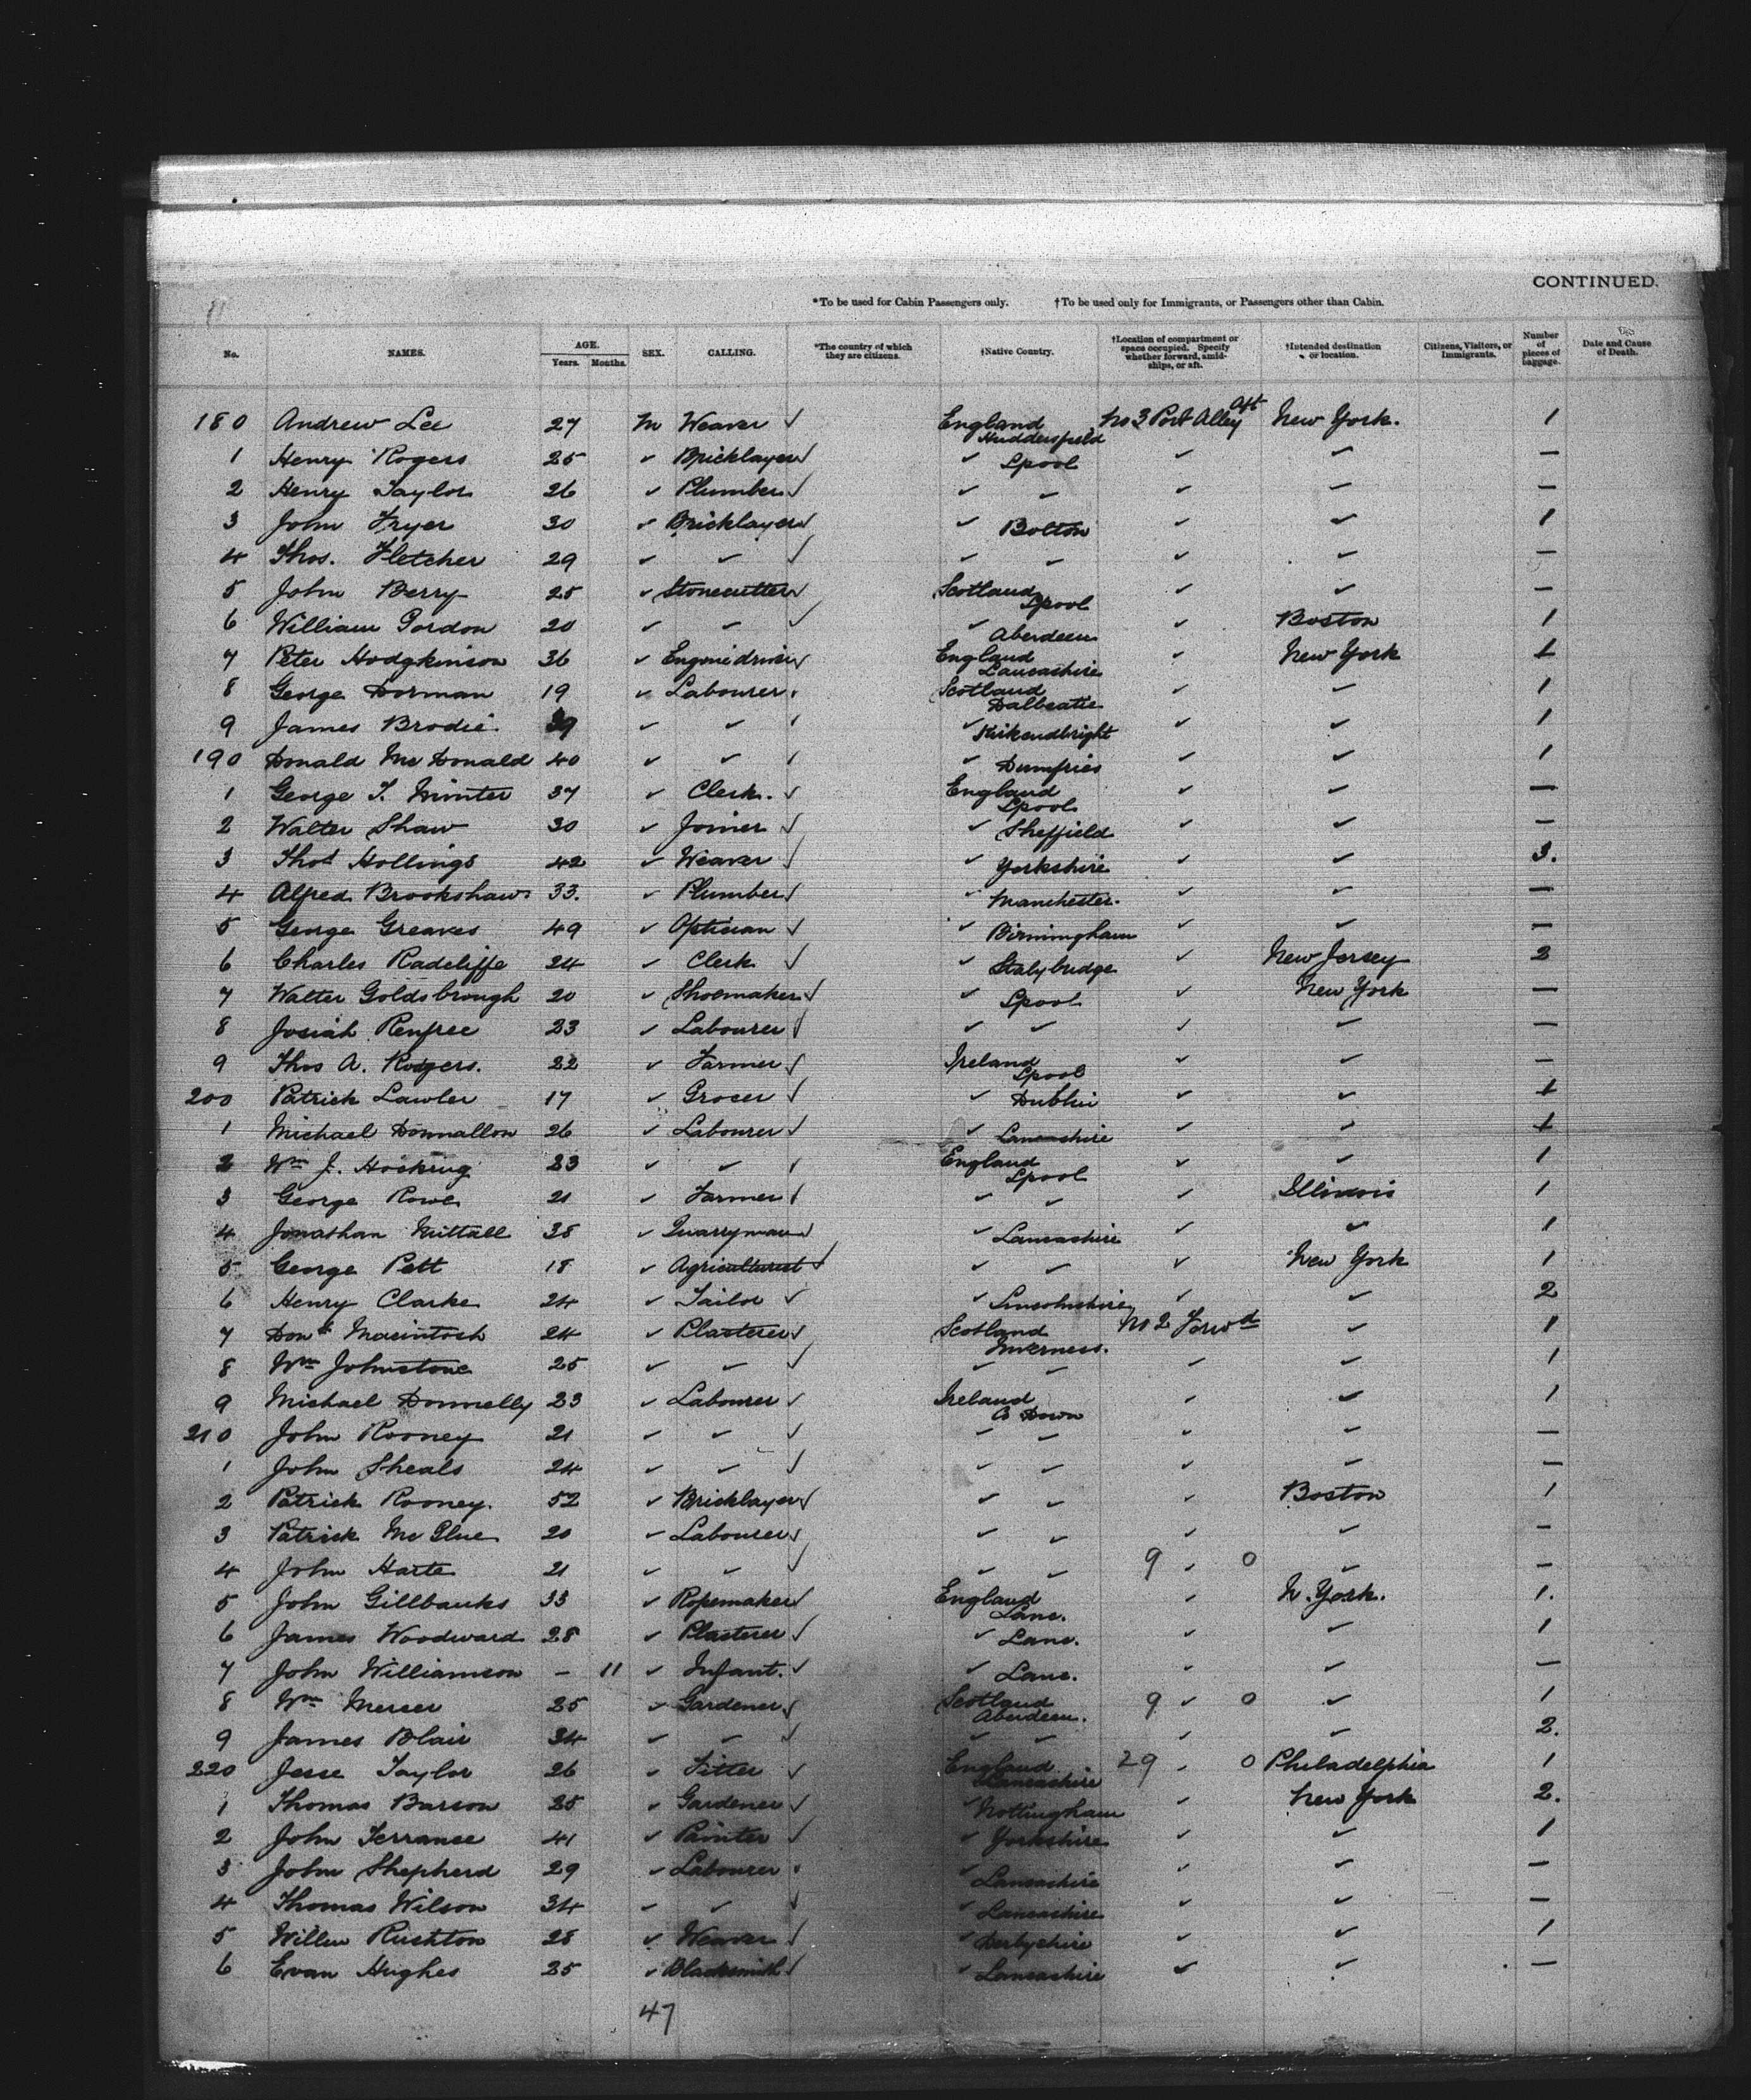 CONTINUED.
*To be used for Cabin Passengers only. †To be used only for Immigrants, or Passengers other than Cabin.
No. NAMES. AGE. Years. Months. SEX. CALLING. *The country of which they are citizens. †Native Country. †Location of compartment or space occupied. Specify whether forward, amidships, or aft. †Intended destination or location. Citizens, Visitors, or Immigrants. Number of pieces of baggage. Date and Cause of Death.
180 Andrew Lee 27 M Weaver ✓ England Huddersfield No 3 Port Alley Aft New York. 1
1 Henry Rogers 25 ✓ Bricklayer ✓ ✓ Lpool ✓ ✓ —
2 Henry Taylor 26 ✓ Plumber ✓ ✓ ✓ ✓ ✓ —
3 John Fryer 30 ✓ Bricklayer ✓ ✓ Bolton ✓ ✓ 1
4 Thos. Fletcher 29 ✓ ✓ ✓ ✓ ✓ ✓ ✓ —
5 John Berry 25 ✓ Stonecutter ✓ Scotland Lpool ✓ ✓ —
6 William Gordon 20 ✓ ✓ ✓ ✓ Aberdeen ✓ Boston 1
7 Peter Hodgkinson 36 ✓ Engine driver ✓ England Lancashire ✓ New York 1
8 George Dorman 19 ✓ Labourer ✓ Scotland Dalbeatie ✓ ✓ 1
9 James Brodie 39 ✓ ✓ ✓ ✓ Kirkcudbright ✓ ✓ 1
190 Donald Mc Donald 40 ✓ ✓ ✓ ✓ Dumfries ✓ ✓ 1
1 George T. Minter 37 ✓ Clerk. ✓ England Lpool ✓ ✓ —
2 Walter Shaw 30 ✓ Joiner ✓ ✓ Sheffield ✓ ✓ —
3 Thos Hollings 42 ✓ Weaver ✓ ✓ Yorkshire ✓ ✓ 3.
4 Alfred Brookshaw 33. ✓ Plumber ✓ ✓ Manchester. ✓ ✓ —
5 George Greaves 49 ✓ Optician ✓ ✓ Birmingham ✓ ✓ —
6 Charles Radcliffe 24 ✓ Clerk ✓ ✓ Stalybridge ✓ New Jersey 2
7 Walter Goldsbrough 20 ✓ Shoemaker ✓ ✓ Lpool ✓ New York —
8 Josiah Renfree 23 ✓ Labourer ✓ ✓ ✓ ✓ ✓ —
9 Thos A. Rodgers. 22 ✓ Farmer ✓ Ireland Lpool ✓ ✓ —
200 Patrick Lawler 17 ✓ Grocer ✓ ✓ Dublin ✓ ✓ 1
1 Michael Donnallon 26 ✓ Labourer ✓ ✓ Lancashire ✓ ✓ 1
2 Wm J. Hocking 23 ✓ ✓ ✓ England Lpool ✓ ✓ 1
3 George Rowe 21 ✓ Farmer ✓ ✓ ✓ ✓ Illinois 1
4 Jonathan Nuttall 38 ✓ Quarryman ✓ ✓ Lancashire ✓ ✓ 1
5 George Pett 18 ✓ Agriculturist ✓ ✓ ✓ ✓ New York 1
6 Henry Clarke 24 ✓ Tailor ✓ ✓ Lincolnshire ✓ ✓ 2
7 Dond Macintosh 24 ✓ Plasterer ✓ Scotland Inverness. No 2 Forwd ✓ 1
8 Wm Johnstone 25 ✓ ✓ ✓ ✓ ✓ ✓ ✓ 1
9 Michael Donnelly 23 ✓ Labourer ✓ Ireland Co Down ✓ ✓ 1
210 John Rooney 21 ✓ ✓ ✓ ✓ ✓ ✓ ✓ —
1 John Sheals 24 ✓ ✓ ✓ ✓ ✓ ✓ ✓ —
2 Patrick Rooney. 52 ✓ Bricklayer ✓ ✓ ✓ ✓ Boston 1
3 Patrick Mc Glue 20 ✓ Labourer ✓ ✓ ✓ ✓ ✓ —
4 John Harte 21 ✓ ✓ ✓ ✓ ✓ 9 ✓ 0 ✓ —
5 John Gillbanks 33 ✓ Ropemaker ✓ England Lanc. ✓ N. York. 1.
6 James Woodward 28 ✓ Plasterer ✓ ✓ Lanc. ✓ ✓ 1
7 John Williamson – 11 ✓ Infant. ✓ ✓ Lanc. ✓ ✓ —
8 Wm Mercer 25 ✓ Gardener ✓ Scotland Aberdeen. 9 ✓ 0 ✓ 1
9 James Blair 34 ✓ ✓ ✓ ✓ ✓ ✓ ✓ 2.
220 Jesse Taylor 26 ✓ Fitter ✓ England Lancashire 29 ✓ 0 Philadelphia 1
1 Thomas Barson 25 ✓ Gardener ✓ ✓ Nottingham ✓ New York 2.
2 John Terrance 41 ✓ Painter ✓ ✓ Yorkshire ✓ ✓ 1
3 John Shepherd 29 ✓ Labourer ✓ ✓ Lancashire ✓ ✓ —
4 Thomas Wilson 34 ✓ ✓ ✓ ✓ Lancashire ✓ ✓ —
5 Willm Rushton 28 ✓ Weaver ✓ ✓ Derbyshire ✓ ✓ 1
6 Evan Hughes 25 ✓ Blacksmith ✓ ✓ Lancashire ✓ ✓ —
47